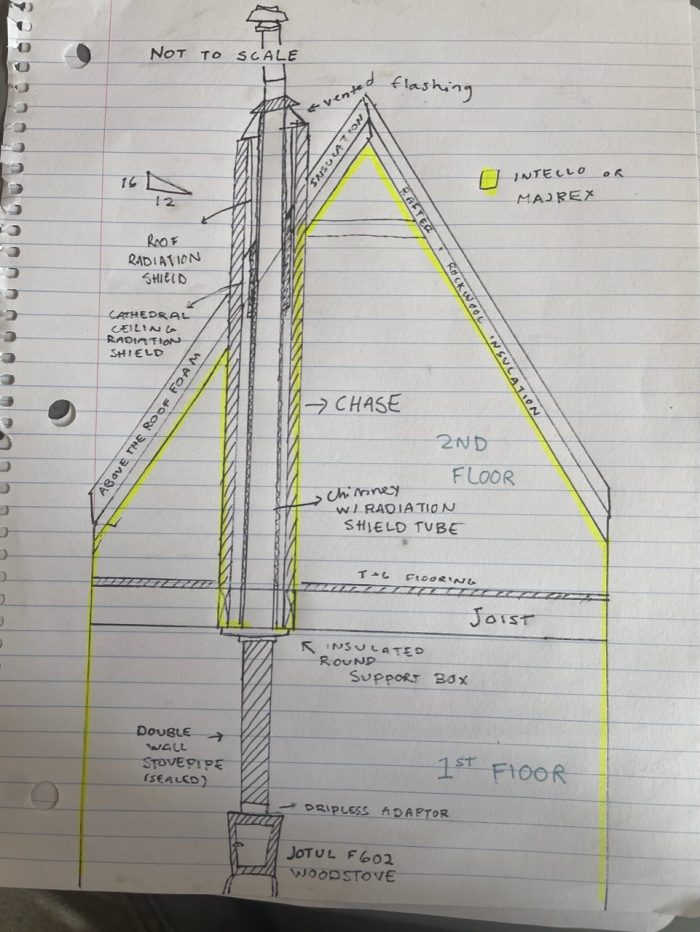 NOT TO SCALE
vented flashing
INSULATION
INTELLO OR
MAJREX
16
12
ROOF
RADIATION
SHIELD
RAFTER & ROCKWOOL INSULATION
CATHEDRAL
CEILING
RADIATION
SHIELD
ABOVE THE ROOF FOAM
CHASE
2ND
FLOOR
chimney
W/ RADIATION
SHIELD TUBE
T+G FLOORING
JOIST
INSULATED
ROUND
SUPPORT BOX
DOUBLE
WALL
STOVEPIPE
(SEALED)
1ST FLOOR
DRIPLESS ADAPTOR
JOTUL F602
WOODSTOVE